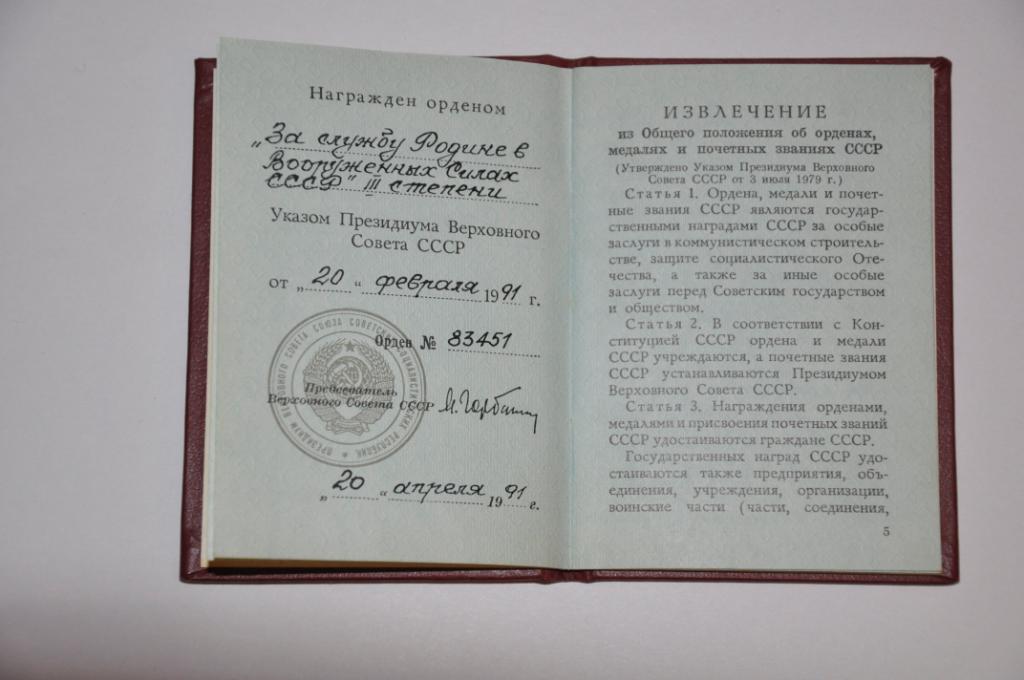 Награжден орденом
„За службу Родине в
Вооруженных Силах
СССР" III степени
Указом Президиума Верховного
Совета СССР
от „20" февраля 1991 г.
Орден № 83451
Председатель
Верховного Совета СССР М. Горбачев
„20" апреля 1991 г.
ПРЕЗИДИУМ ВЕРХОВНОГО СОВЕТА СОЮЗА СОВЕТСКИХ СОЦИАЛИСТИЧЕСКИХ РЕСПУБЛИК
ИЗВЛЕЧЕНИЕ
из Общего положения об орденах,
медалях и почетных званиях СССР
(Утверждено Указом Президиума Верховного
Совета СССР от 3 июля 1979 г.)
Статья 1. Ордена, медали и почет-
ные звания СССР являются государ-
ственными наградами СССР за особые
заслуги в коммунистическом строитель-
стве, защите социалистического Оте-
чества, а также за иные особые
заслуги перед Советским государством
и обществом.
Статья 2. В соответствии с Кон-
ституцией СССР ордена и медали
СССР учреждаются, а почетные звания
СССР устанавливаются Президиумом
Верховного Совета СССР.
Статья 3. Награждения орденами,
медалями и присвоения почетных званий
СССР удостаиваются граждане СССР.
Государственных наград СССР удо-
стаиваются также предприятия, объ-
единения, учреждения, организации,
воинские части (части, соединения,
5